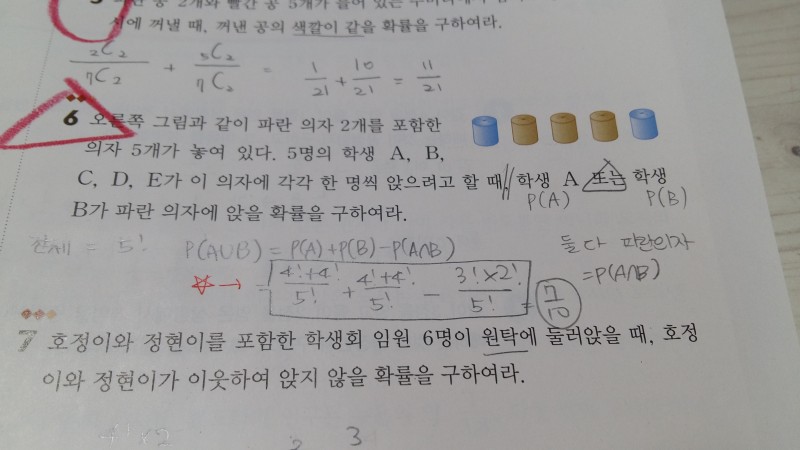 파란 공 2개와 빨간 공 5개가 들어 있는
시에 꺼낼 때, 꺼낸 공의 색깔이 같을 확률을 구하여라.
2C2/7C2 + 5C2/7C2 = 1/21 + 10/21 = 11/21
6 오른쪽 그림과 같이 파란 의자 2개를 포함한
의자 5개가 놓여 있다. 5명의 학생 A, B,
C, D, E가 이 의자에 각각 한 명씩 앉으려고 할 때, 학생 A 또는 학생
P(A) P(B)
B가 파란 의자에 앉을 확률을 구하여라.
전체 = 5! P(A∪B) = P(A)+P(B)-P(A∩B) 둘 다 파란의자
=P(A∩B)
☆→ = 4!+4!/5! + 4!+4!/5! - 3!×2!/5! = 7/10
7 호정이와 정현이를 포함한 학생회 임원 6명이 원탁에 둘러앉을 때, 호정
이와 정현이가 이웃하여 앉지 않을 확률을 구하여라.
4!×2 3